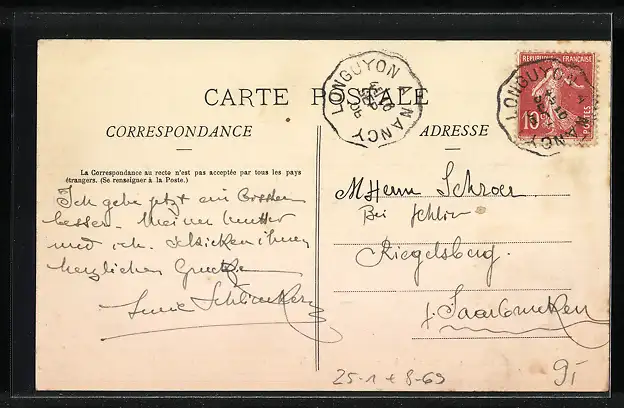 CARTE POSTALE
CORRESPONDANCE
La Correspondance au recto n'est pas acceptée par tous les pays
étrangers. (Se renseigner à la Poste.)
Ich gehe jetzt ein
besser. Meine Mutter
und ich schicken ihnen
herzlichen
ADRESSE
M Herrn Schroer
Bei
Riegelsberg.
Saarbrucken
LONGUYON A NANCY
REPUBLIQUE FRANÇAISE
10
POSTES
LONGUYON A NANCY
25-1 + 8-69